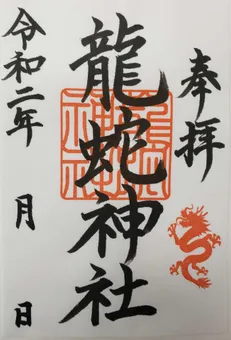 奉拝
龍蛇神社
令和二年 月 日